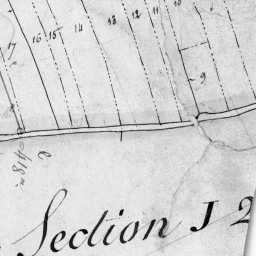 17 16 15 14 13 12 11
9
Section J 2